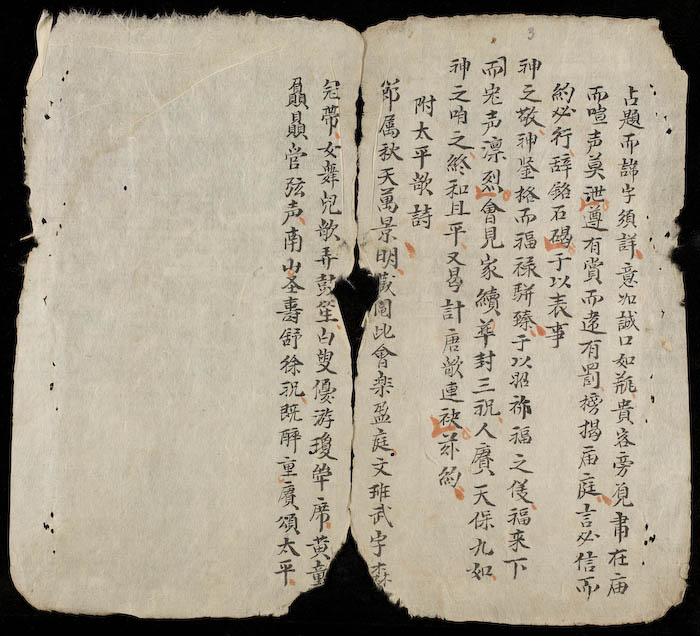 3
占題而諦字須詳意如誠口如瓶貴客旁肅在庙
而喧声莫泄遵有賞而違有罰榜揭庙庭言必信而
約必行辞銘石碣于以表事
神之敬神鉴格而福禄駢臻于以昭祚福之福来下
而声凛烈會見家續華封三祝人賡天保九如
神之之終和且平又曷計唐歌連袂約
附太平歌詩
節属秋天萬景明比會楽盈庭文班武字森
冠帶女舞兒歌弄彭笙白叟優游瓊席黄童
贔贔管弦声南山圣壽舒徐祝既醉重賡頌太平